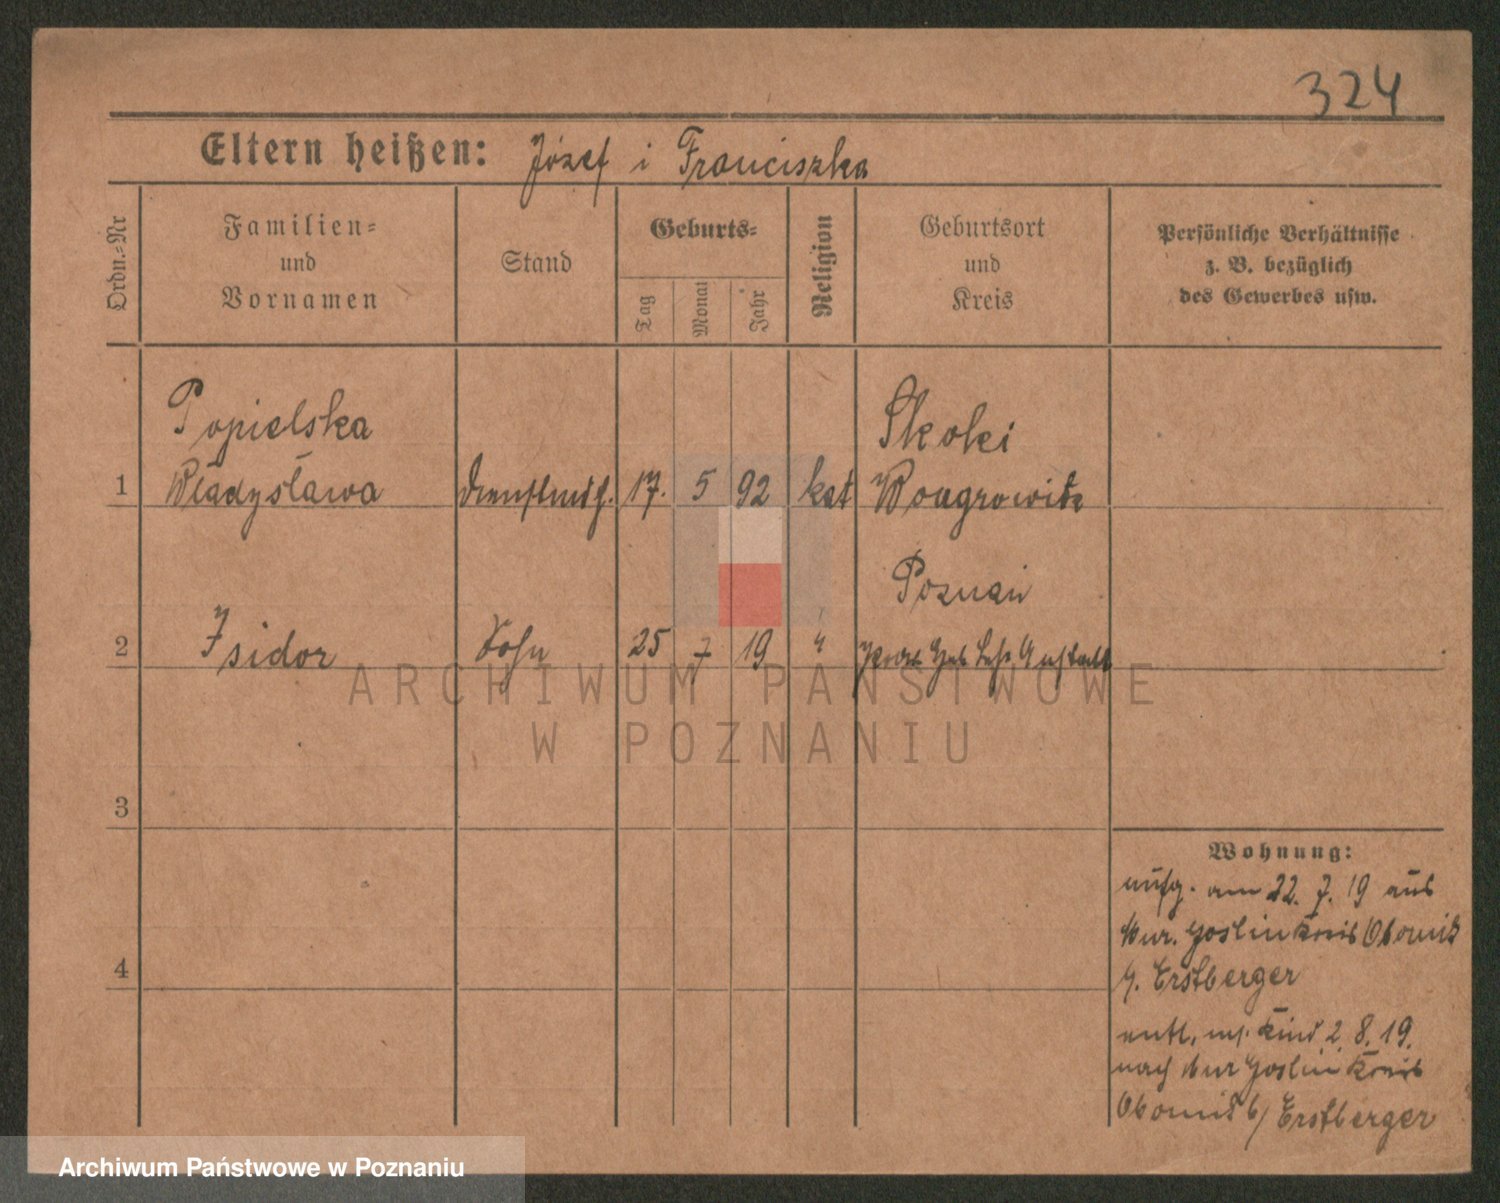 324
Eltern heißen: Józef i Franciszka
Ordn.-Nr
Familien-
und
Vornamen
Stand
Geburts-
Tag
Monat
Jahr
Religion
Geburtsort
und
Kreis
Persönliche Verhältnisse
z. B. bezüglich
des Gewerbes usw.
Popielska
Skoki
1 Władysława 17. 5 92 kat Wongrowitz
Poznań
2 Isidor Sohn 25 7 19 " Prov. Heb. Lehr Anstalt
3
4
Wohnung:
aufg. am 22. 7. 19 aus
Mur. Goslin Kreis Obornik
Erstberger
entl. m. Kind 2. 8. 19.
nach Mur Goslin Kreis
Obornik b/ Erstberger
ARCHIWUM PAŃSTWOWE
W POZNANIU
Archiwum Państwowe w Poznaniu